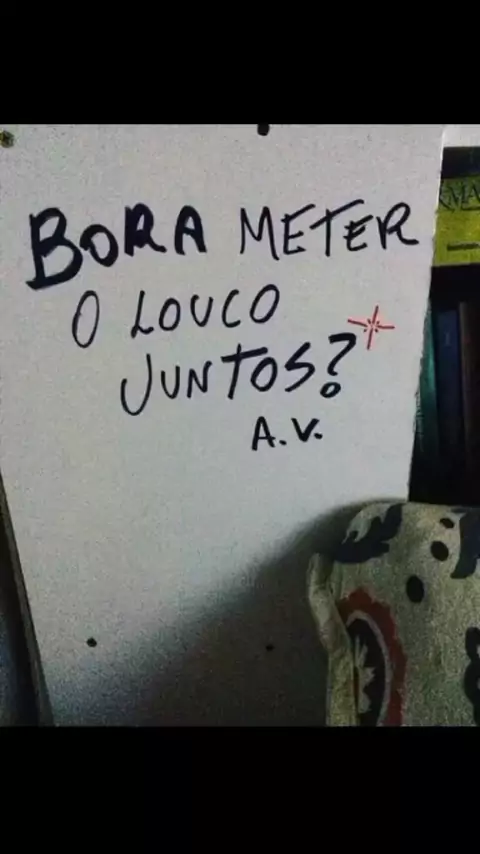 BORA METER
O LOUCO
JUNTOS?
A.V.